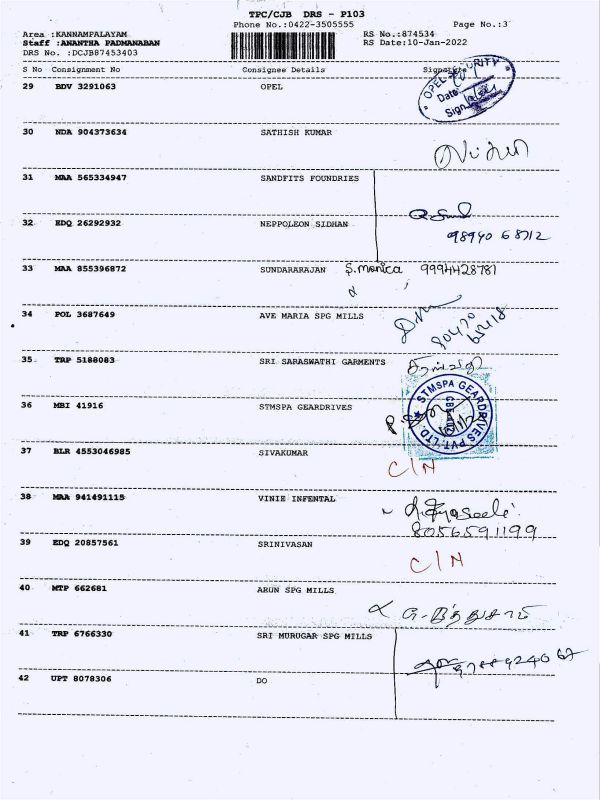 TPC/CJB DRS - P103
Phone No.:0422-3505555 Page No.:3
Area :KANNAMPALAYAM RS No.:874534
Staff :ANANTHA PADMANABAN RS Date:10-Jan-2022
DRS No. :DCJB87453403
S No Consignment No Consignee Details Signature
29 BDV 3291063 OPEL
OPEL SECURITY
Date
Sign
30 NDA 904373634 SATHISH KUMAR
31 MAA 565334947 SANDFITS FOUNDRIES
32 EDQ 26292932 NEPPOLEON SIDHAN
98940 68712
33 MAA 855396872 SUNDARARAJAN S.monica 9994428781
34 POL 3687649 AVE MARIA SPG MILLS
35 TRP 5188083 SRI SARASWATHI GARMENTS
36 MBI 41916 STMSPA GEARDRIVES
STMSPA GEARDRIVES PVT LTD.
37 BLR 4553046985 SIVAKUMAR
C/N
38 MAA 941491115 VINIE INFENTAL
8056591199
39 EDQ 20857561 SRINIVASAN
C/N
40 MTP 662681 ARUN SPG MILLS
41 TRP 6766330 SRI MURUGAR SPG MILLS
42 UPT 8078306 DO